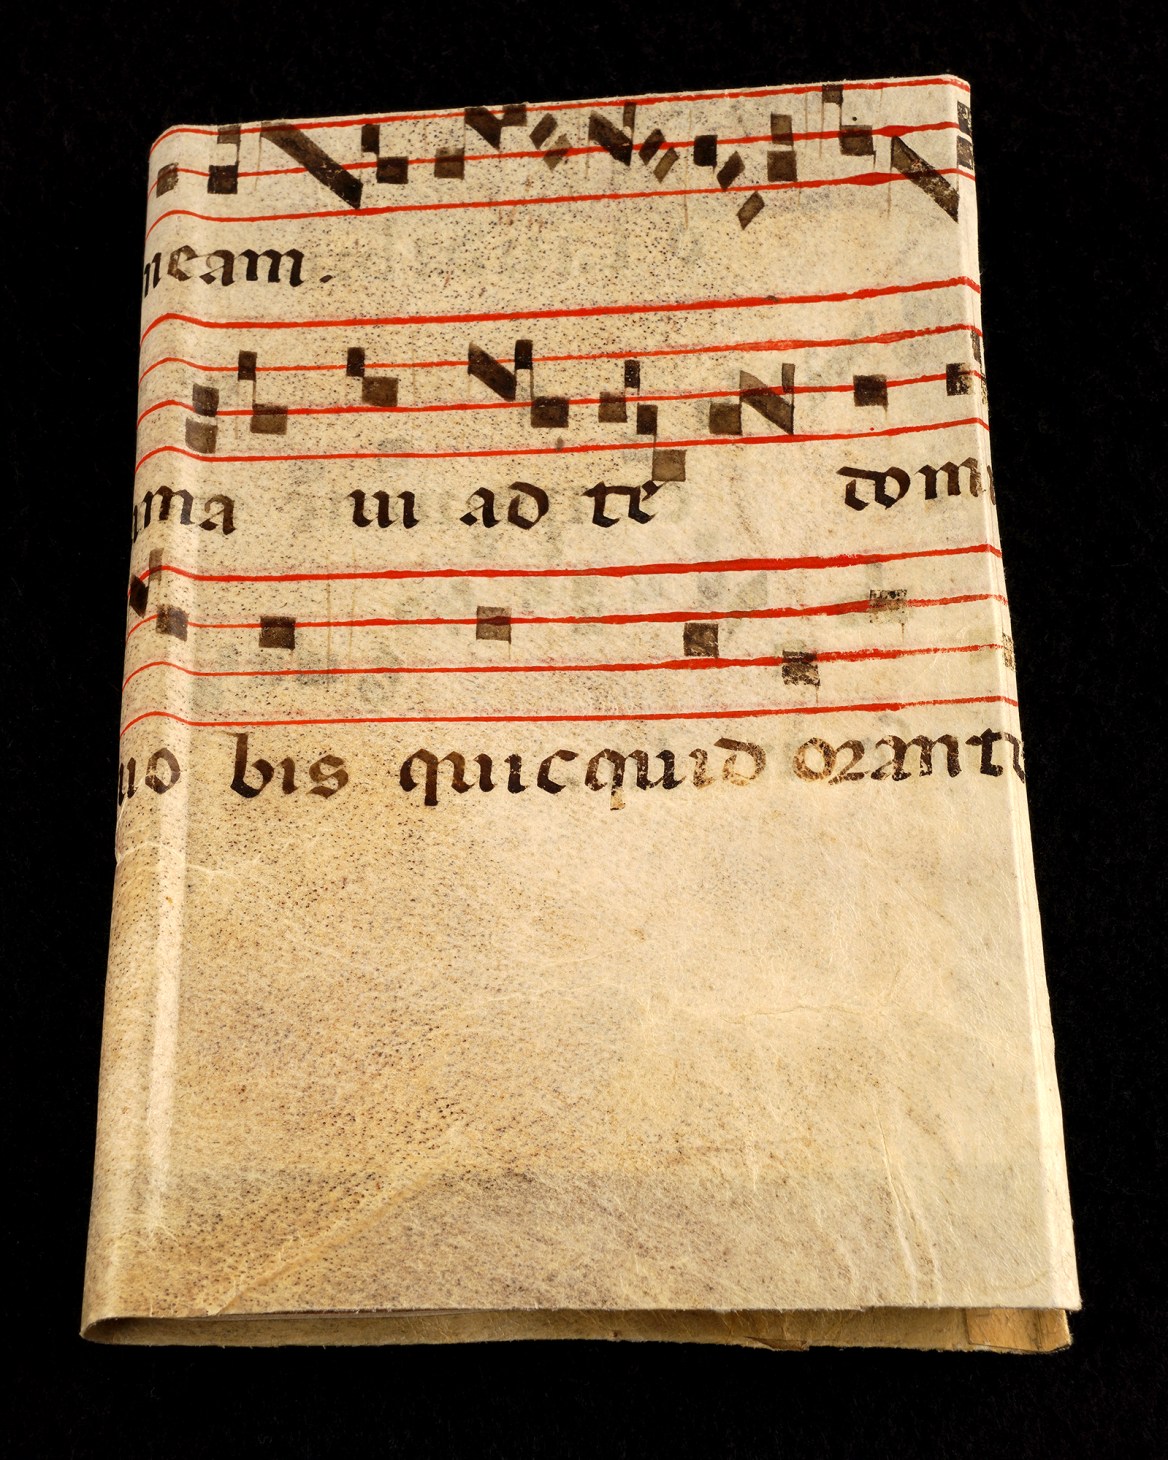 neam.
ma ui ad te domi
uo bis quicquid oranti